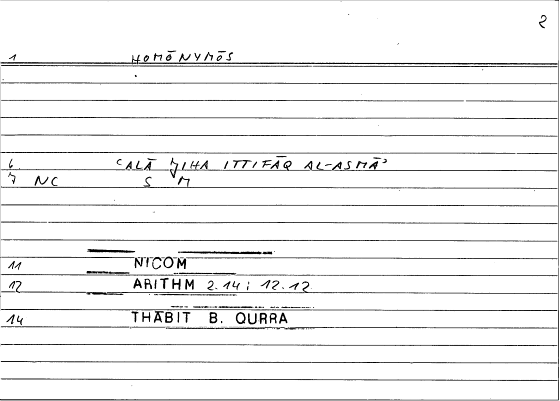 2
1 HOMŌNYMŌS
6 ʿALĀ ǦIHA ITTIFĀQ AL-ASMĀʾ
7 NC S M
11 NICOM
12 ARITHM 2.14; 12.12
14 THĀBIT B. QURRA